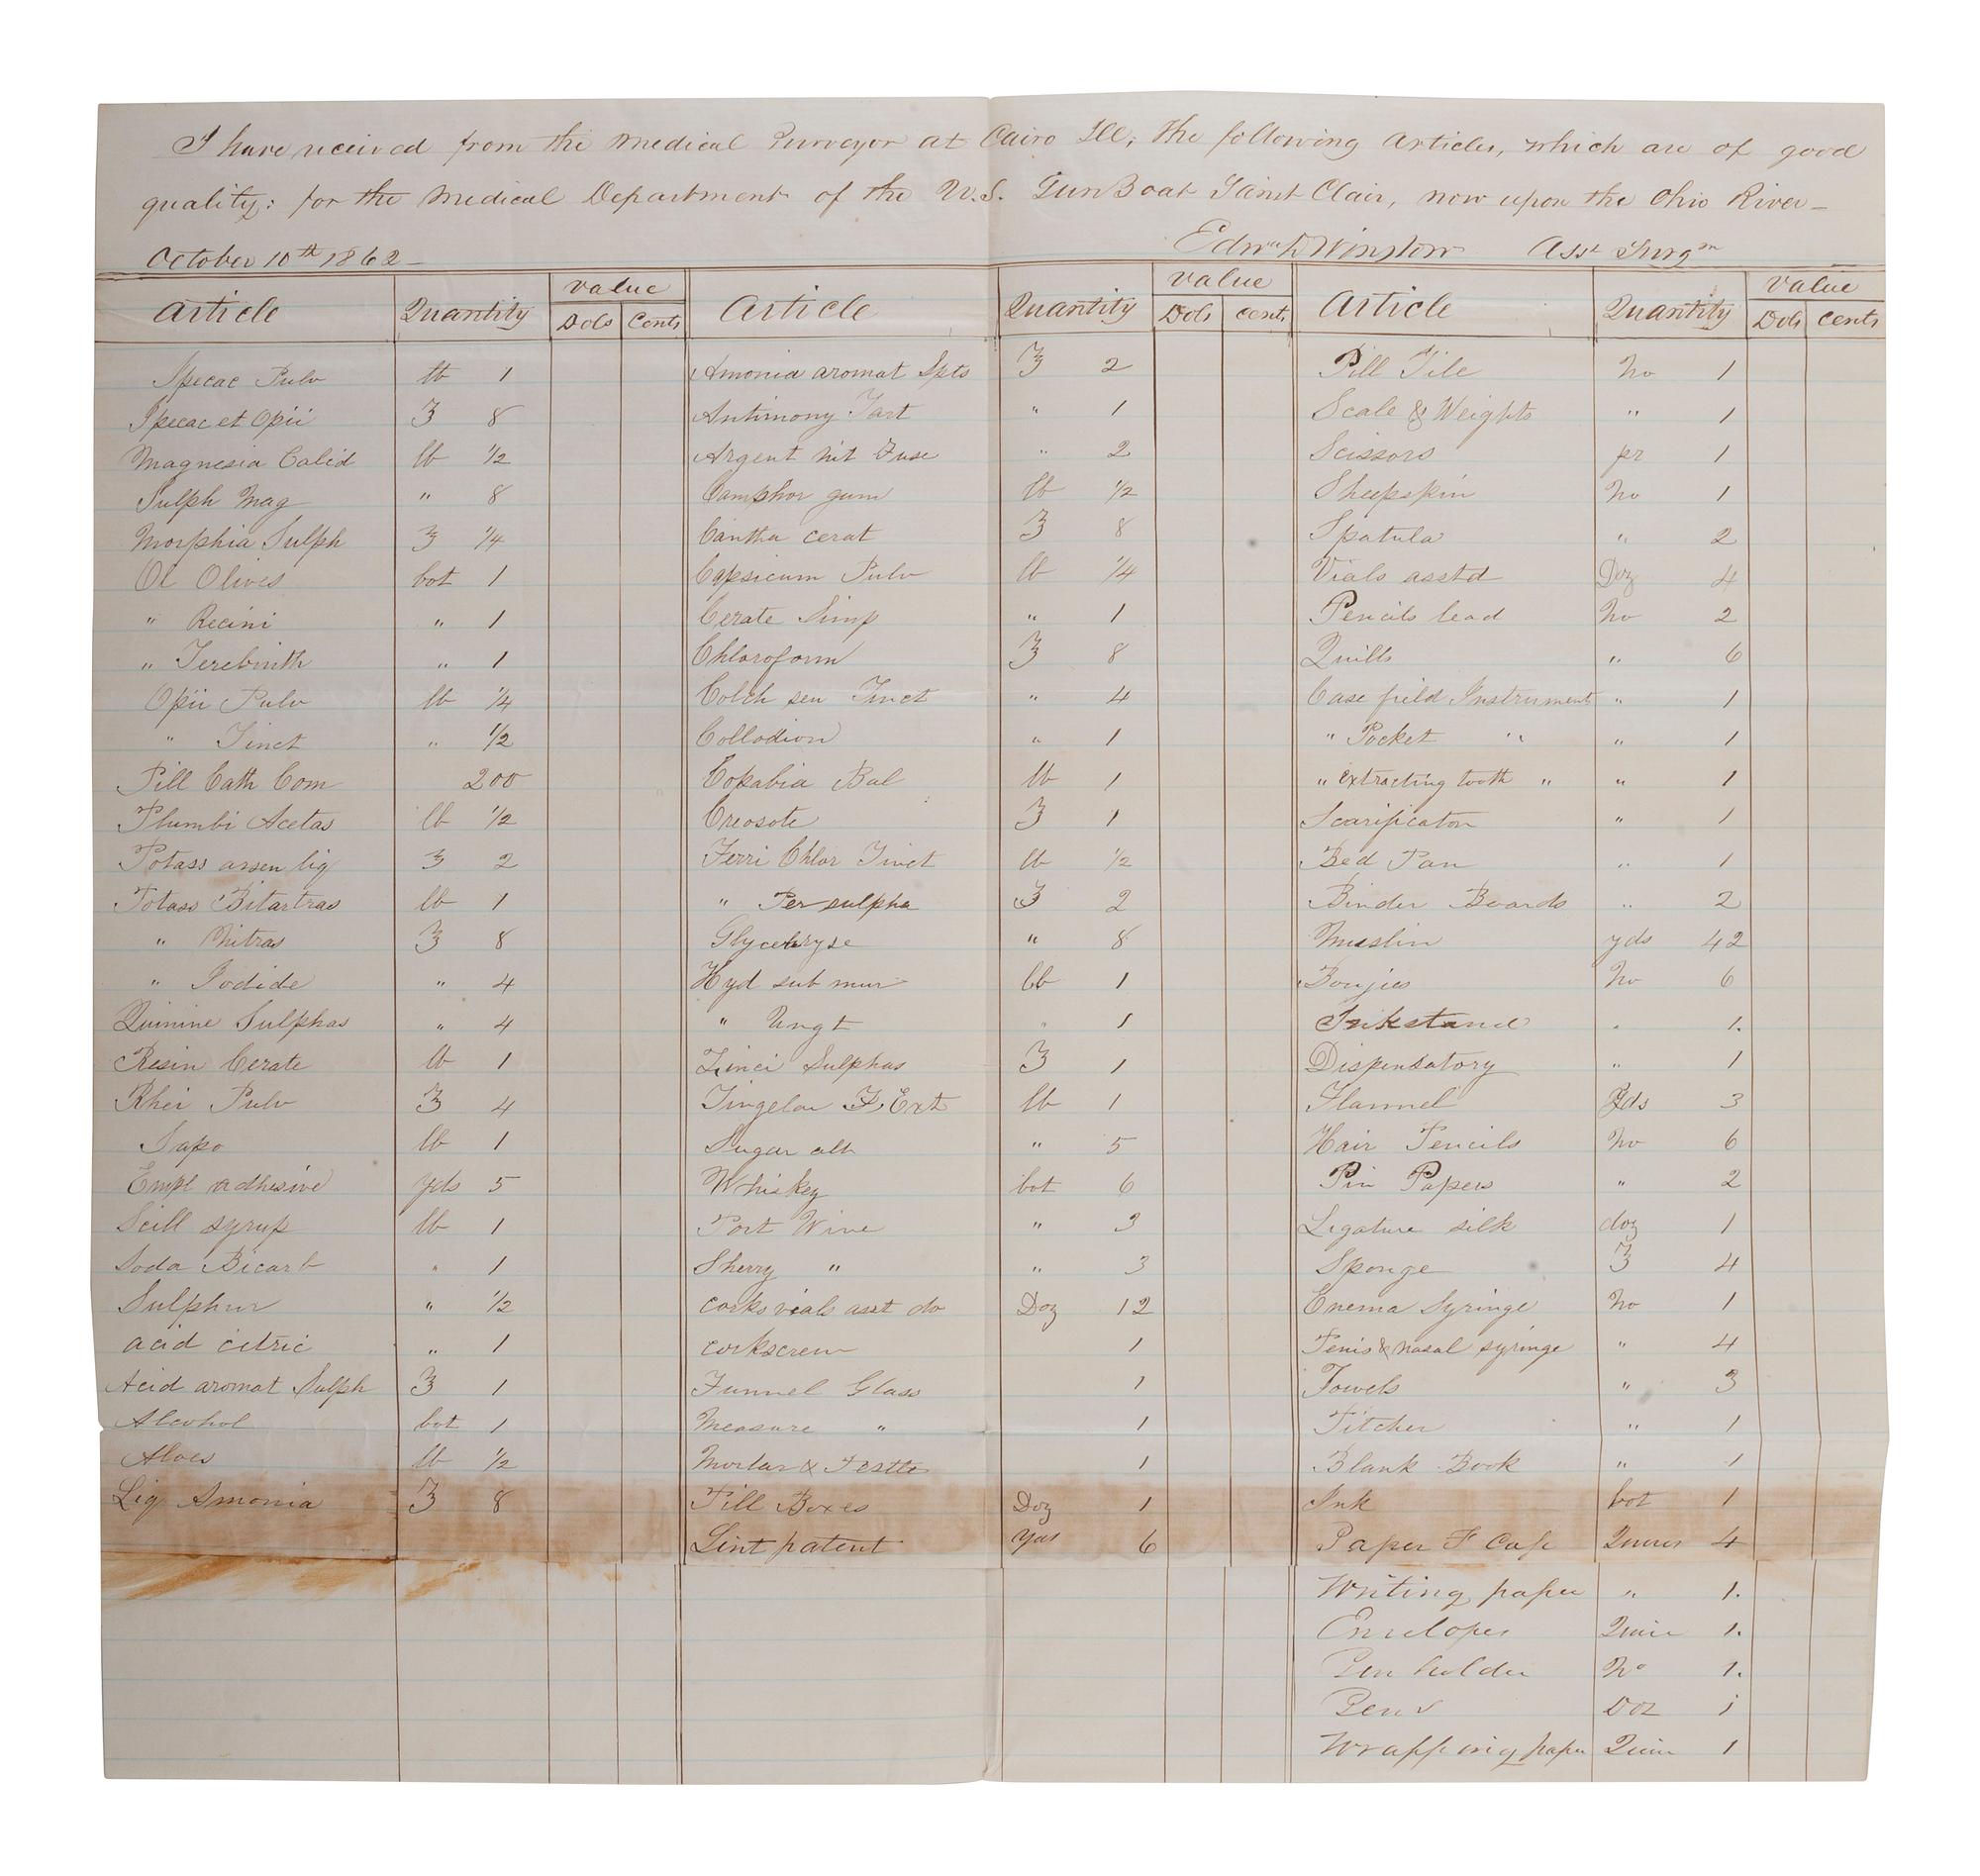 I have received from the Medical Purveyor at Cairo Ill; the following Articles, which are of good
quality: for the Medical Department of the U.S. GunBoat Saint Clair, now upon the Ohio River—
October 10th 1862— Edwd Winslow Asst Surgn
Article Quantity Value Dols Cents Article Quantity Value Dols cents Article Quantity Value Dols cents
Ipecac Pulv lb 1 Amonia aromat Spts ℥ 2 Pill Tile No 1
Ipecac et Opii ℥ 8 Antimony Tart " 1 Scale & Weights " 1
Magnesia Calcd lb 1/2 Argent nit Fuse " 2 Scissors pr 1
Sulph Mag " 8 Camphor gum lb 1/2 Sheepskin No 1
Morphia Sulph ℥ 1/4 Cantha cerat ℥ 8 Spatula " 2
Ol Olives bot 1 Capsicum Pulv lb 1/4 Vials asstd Doz 4
" Recini " 1 Cerate Simp " 1 Pencils lead No 2
" Terebinth " 1 Chloroform ℥ 8 Quills " 6
Opii Pulv lb 1/4 Colch sem Tinct " 4 Case field Instruments " 1
" Tinct " 1/2 Collodion " 1 " Pocket " " 1
Pill Cath Com 200 Copabia Bal lb 1 " extracting tooth " " 1
Plumbi Acetas lb 1/2 Creosote ℥ 1 Scarificator " 1
Potass arsen liq ℥ 2 Ferri Chlor Tinct lb 1/2 Bed Pan " 1
Potass Bitartras lb 1 " Per sulpha ℥ 2 Binder Boards " 2
" Nitras ℥ 8 " 8 Muslin yds 42
" Iodide " 4 Hyd sub mur lb 1 Boujies No 6
Quinine Sulphas " 4 " Ungt " 1 Inkstand " 1.
Resin Cerate lb 1 Zinci Sulphas ℥ 1 Dispensatory " 1
Rhei Pulv ℥ 4 F. Ext lb 1 Flannel Yds 3
Sapo lb 1 Sugar alb " 5 Hair Pencils No 6
Empl adhesive yds 5 Whiskey bot 6 Pin Papers " 2
Scill syrup lb 1 Port Wine " 3 Ligature silk doz 1
Soda Bicarb " 1 Sherry " " 3 Sponge ℥ 4
Sulphur " 1/2 corks vials asst do Doz 12 Enema Syringe No 1
acid citric " 1 corkscrew 1 Penis & nasal syringe " 4
Acid aromat Sulph ℥ 1 Funnel Glass 1 Towels " 3
Alcohol bot 1 Measure " 1 Pitcher " 1
Aloes lb 1/2 Mortar & Pestle 1 Blank Book " 1
Liq Amonia ℥ 8 Pill Boxes Doz 1 Ink bot 1
Lint patent Yds 6 Paper F Cap Quires 4
Writing paper " 1.
Envelopes Quire 1.
Pen holder No 1.
Pens Doz 1
Wrapping paper Quire 1